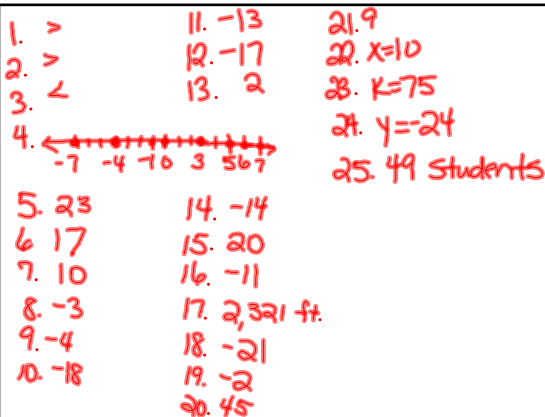 1. >
2. >
3. <
4.
-7 -4 -1 0 3 5 6 7
5. 23
6 17
7. 10
8. -3
9. -4
10. -18
11. -13
12. -17
13. 2
14. -14
15. 20
16. -11
17. 2,321 ft.
18. -21
19. -2
20. 45
21. 9
22. x=10
23. K=75
24. y=-24
25. 49 students